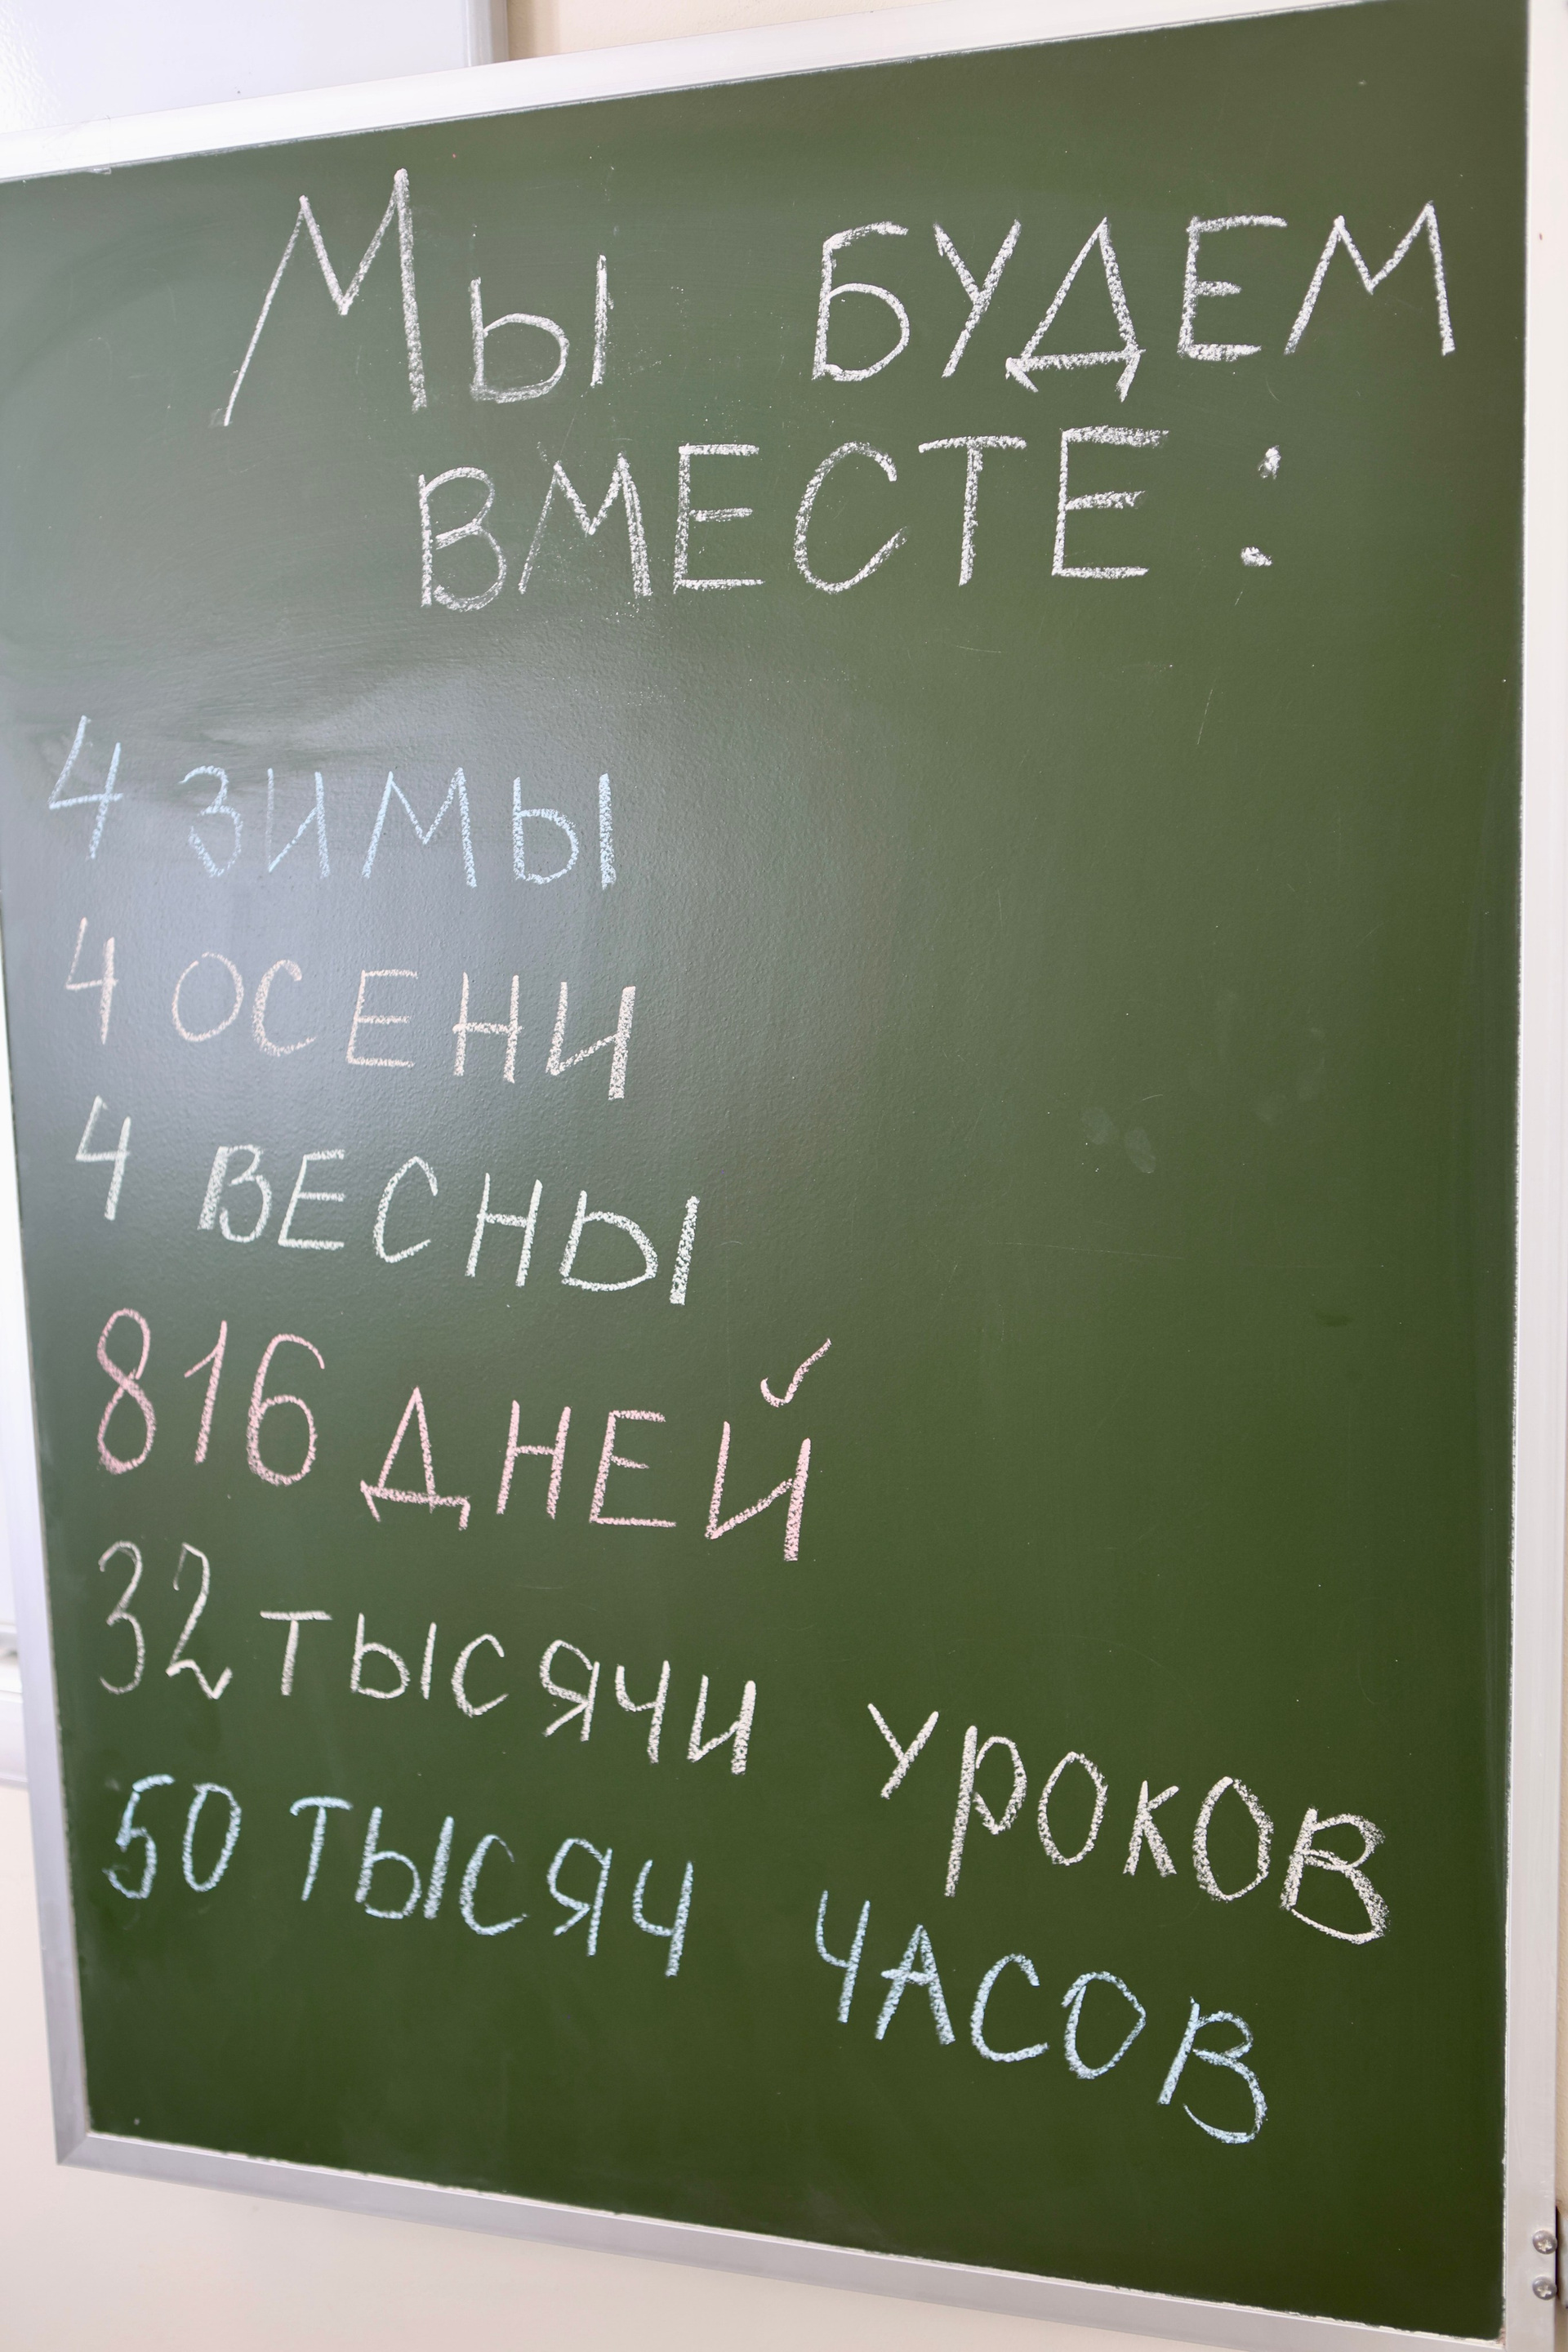 Мы БУДЕМ
ВМЕСТЕ:
4 ЗИМЫ
4 ОСЕНИ
4 ВЕСНЫ
816 ДНЕЙ
32 ТЫСЯЧИ УРОКОВ
50 ТЫСЯЧ ЧАСОВ